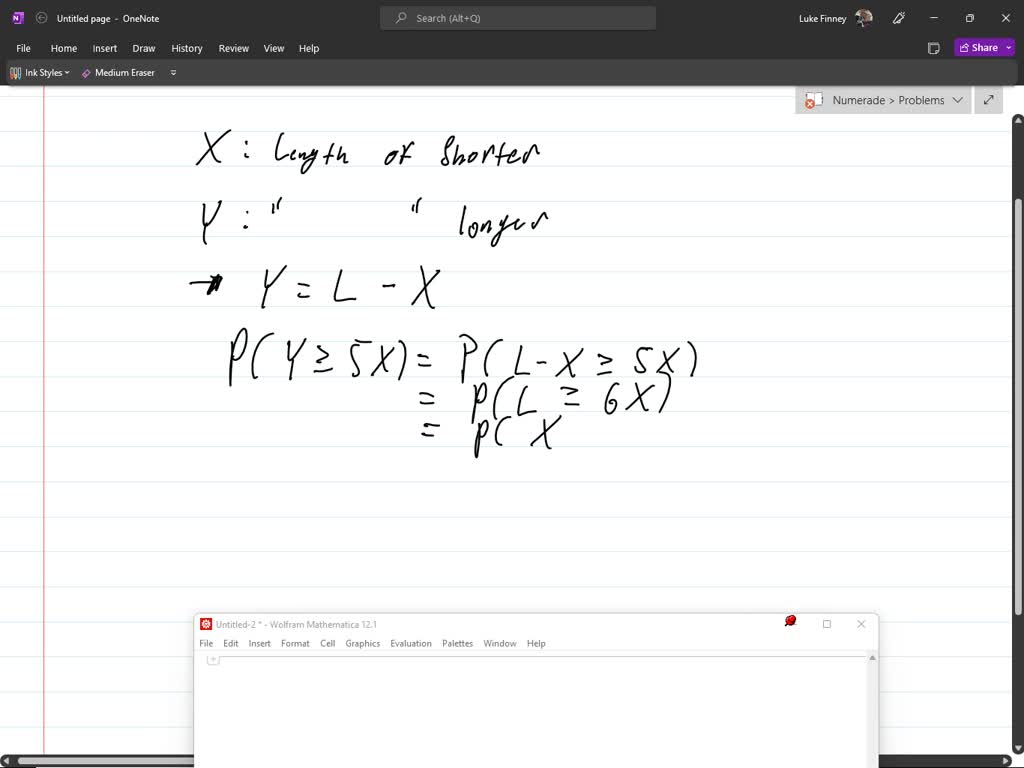 Untitled page - OneNote
Search (Alt+Q)
Luke Finney
File Home Insert Draw History Review View Help
Share
Ink Styles Medium Eraser
Numerade > Problems
X : Length of Shorter
Y : " " longer
→ Y = L - X
P( Y ≥ 5X) = P( L - X ≥ 5X)
= P( L ≥ 6X)
= P( X
Untitled-2 * - Wolfram Mathematica 12.1
File Edit Insert Format Cell Graphics Evaluation Palettes Window Help